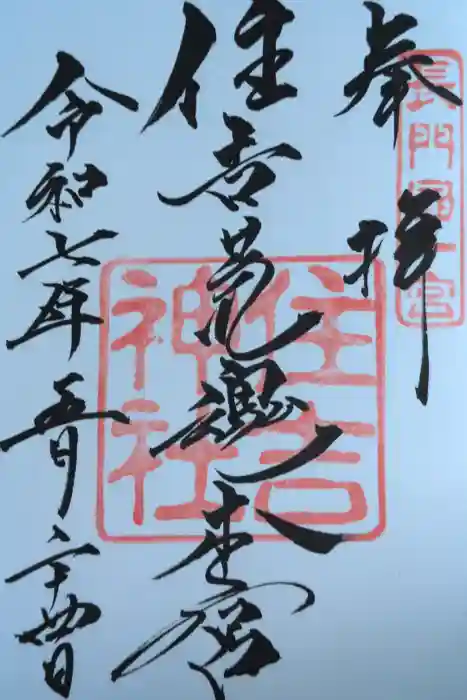 奉拝
長門國一宮
住吉荒魂本宮
住吉
神社
令和七年五月二十四日